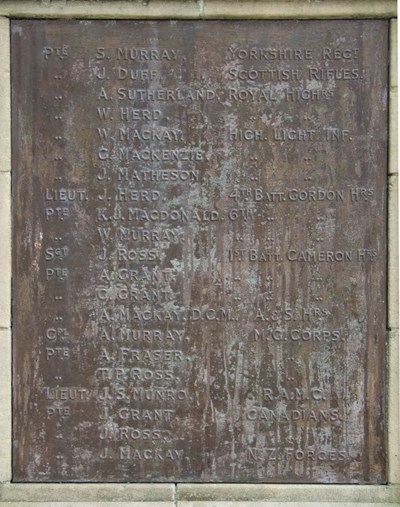 PTE S. MURRAY. YORKSHIRE REG.
" J. DUFF. SCOTTISH RIFLES.
" A. SUTHERLAND. ROYAL HIGHRS
" W. HERD. " "
" W. MACKAY. HIGH. LIGHT INF.
" C. MACKENZIE. " "
" J. MATHESON. " "
LIEUT. J. HERD. 4TH BATT. GORDON HRS
PTE K.J. MACDONALD. 6TH " "
" W. MURRAY. " "
SGT J. ROSS. 1ST BATT. CAMERON HRS
PTE A. GRANT. " "
" G. GRANT. " "
" A. MACKAY, D.C.M. A. & S. HRS
CPL A. MURRAY. M.G. CORPS.
PTE A. FRASER. "
" T.P. ROSS. "
LIEUT. J.S. MUNRO. R.A.M.C.
PTE J. GRANT. CANADIANS.
" J. ROSS. "
" J. MACKAY. N.Z. FORCES.